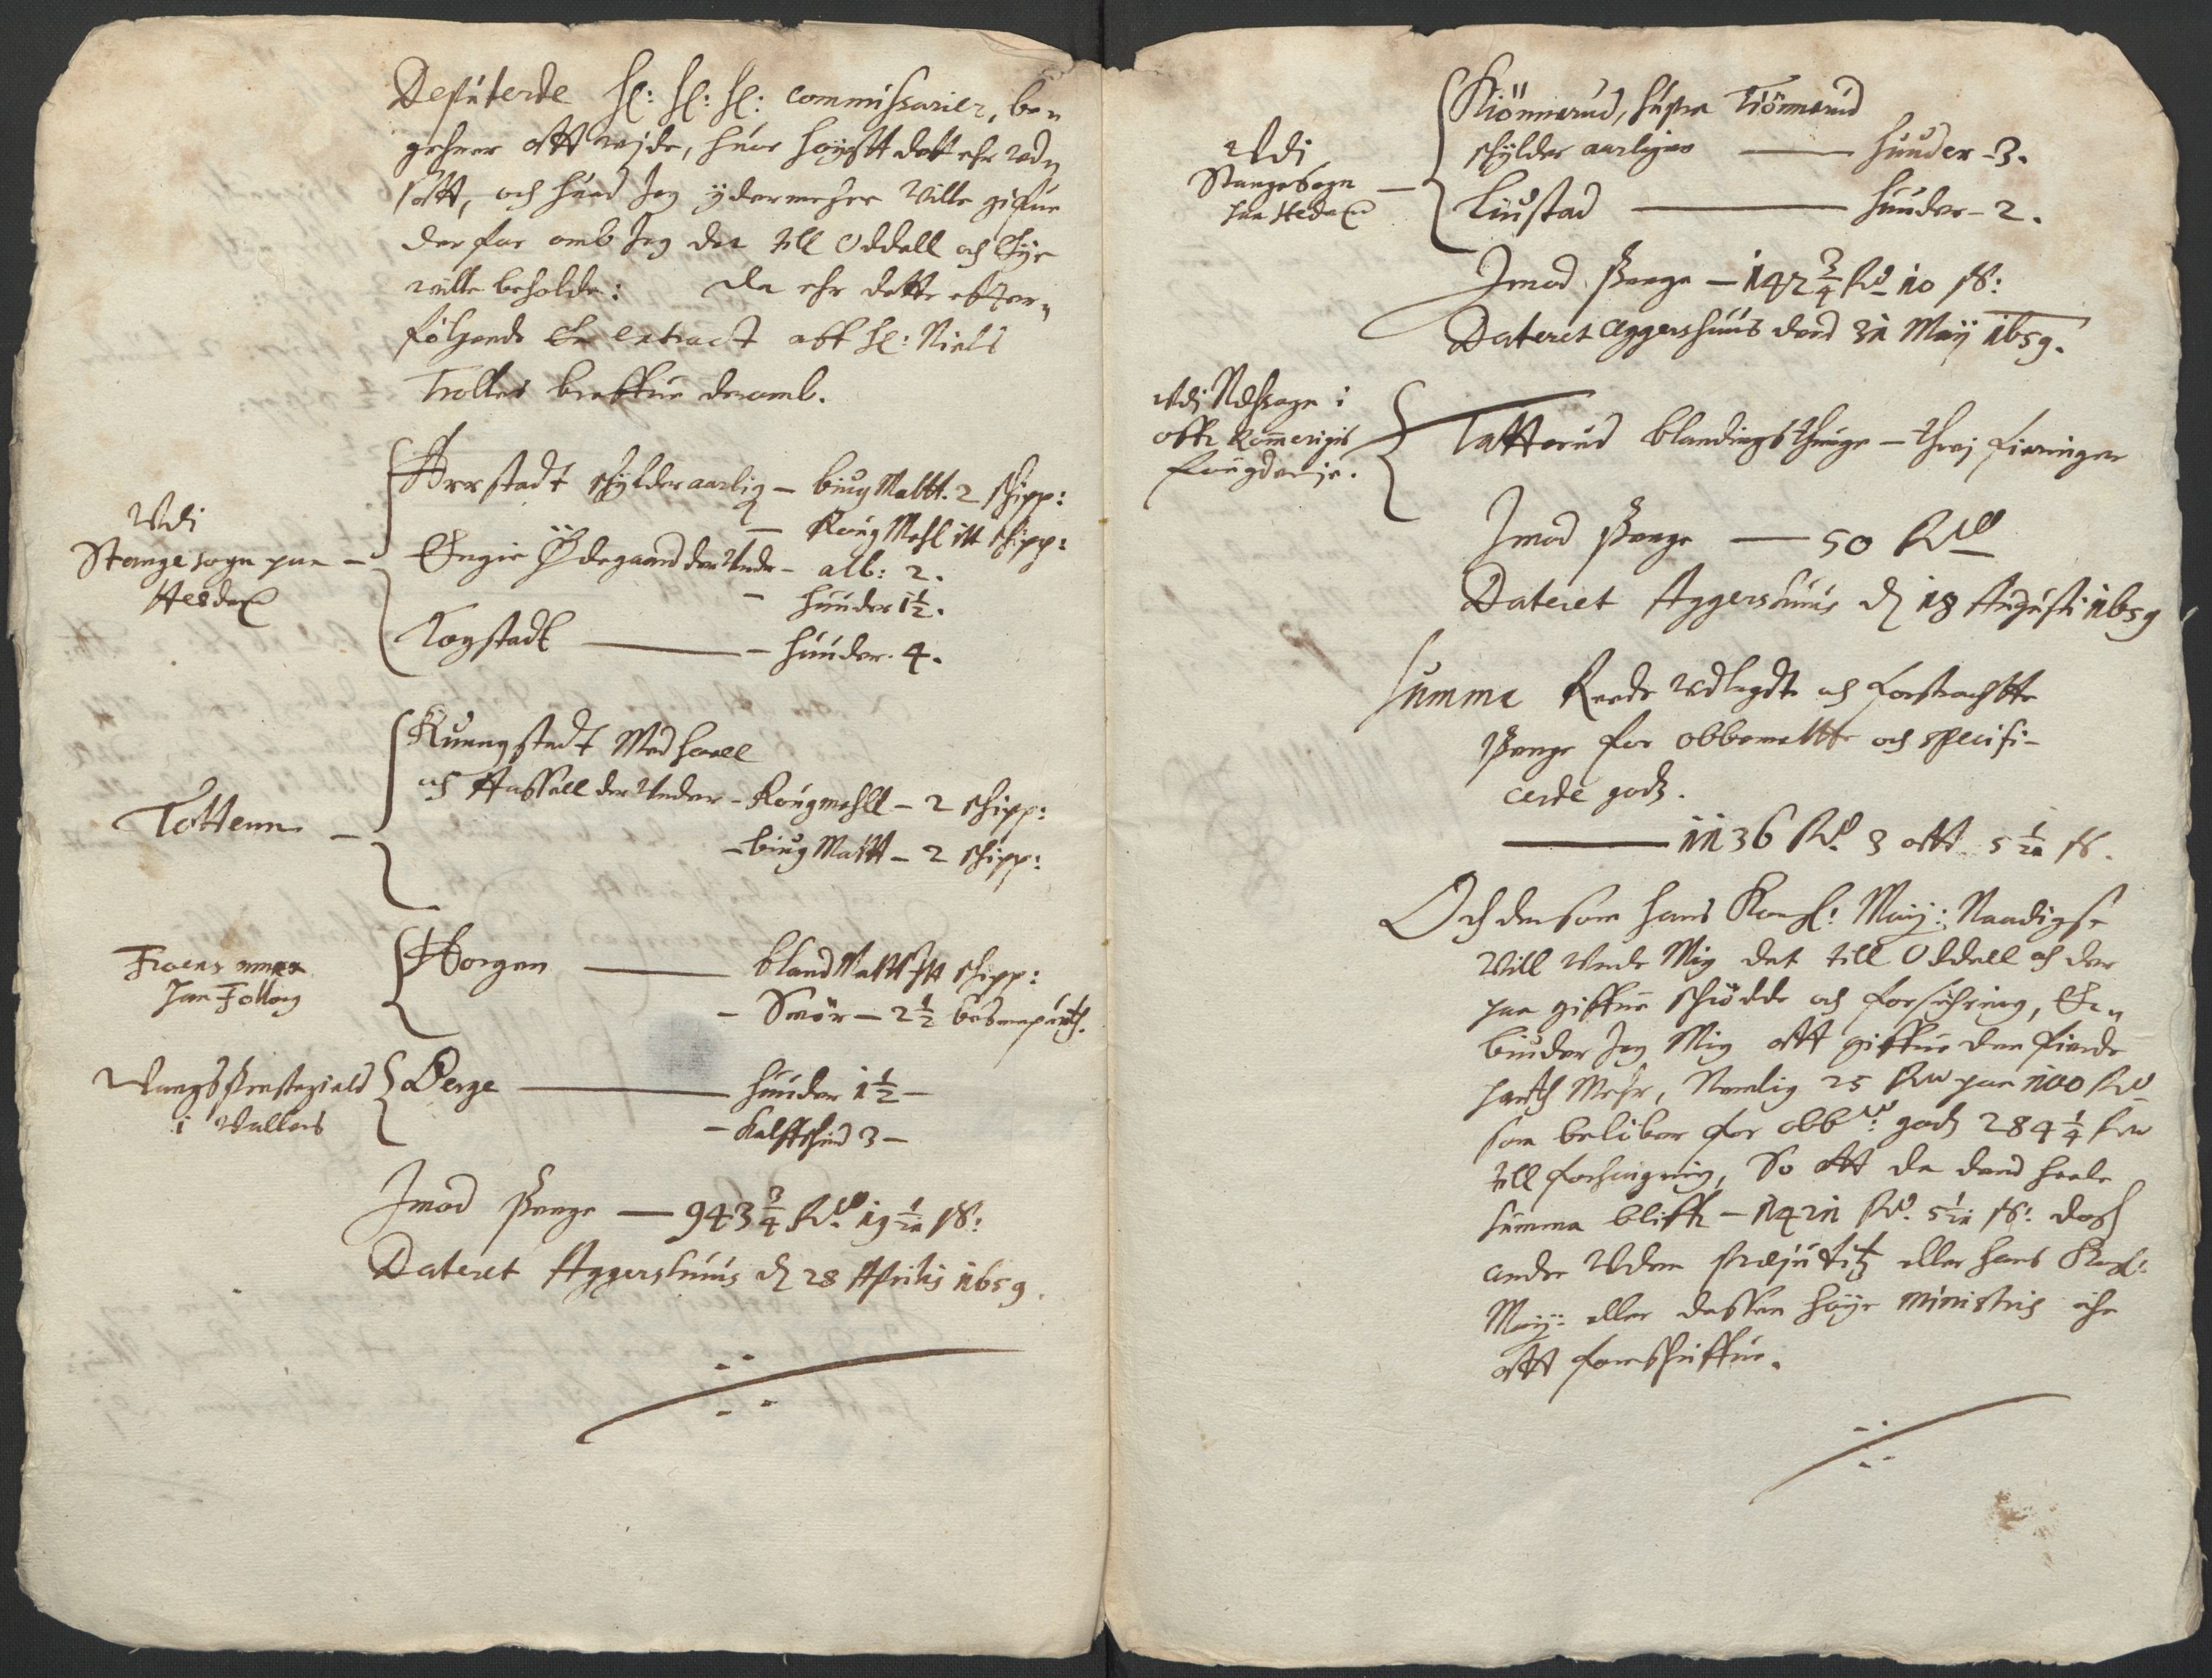 Deputerde H: H: H: Commissarier, be„
gehrer att wide, huor høygtt dett ehr udj
satt, och huad Jeg ydermehre Ville gifue
der for omb Jeg det till Oddell och Eye
ville beholde: da ehr dette effter„
følgende En extract aff H: Niels
Trolles breffue deromb.
Udi
Stange sogn paa
Hedem
Arrstadt schylder aarlig – biug Maltt. 2 schipp:
– Roug Mehl itt schipp:
Engie Ødegaard der Under – alb: 2.
– huuder 1½.
Rogstadt – huuder. 4.
Totten
Kuangstadt Med
och Aassell der Under – Rougmehll – 2 schipp:
– biug Maltt – 2 schipp:
Froens
Jan Folloug
Horgen – bland Maltt itt schipp:
– Smør – 2½ besmerpundt.
Wangs Prestegield
i Walders
Berge – huuder 1½ –
– Kalffschind 3 –
Imod Penge – 943¾ Rdr 19 ½ ß:
Dateret Aggershuus d 28 Aprilis 1659.
Udi
Stange Sogn
paa Hedem
Kiønnerud, hustra Tiønnerud
schylder aarligen – huuder – 3.
Liustad – huuder – 2.
Imod Penge – 142¾ Rd 10 ß:
Dateret Aggershuus dend 31 Maij 1659.
Udi Næssogn i
offr Rommerigis
fougderje.
Tatterud blandings thunge – threj fieringer
Imod Penge – 50 Rdr
Dateret Aggershuus d 18 Augusti 1659
Summa Reede udlagdte och forstrachtte
Penge for obbemeltte och specifi-
cerde godz.
– 1136 Rdr. 3 ortt 5 ½ ß.
Och dersom hans Kongl: May: Naadigst
Vill Unde Mig det till Oddell och der
paa giffue schiødde och forsichring, Er„
biuder Jeg Mig att giffue den fierde
parth Mehr, Nemlig 25 Rdr paa 100 Rdr
som beløber for obbte: godz 284¼ Rdr
till forhøigning, So att da dend heele
Summa bliffr – 1421 Rdr. 5 ½ ß: doch
andre Uden præjuditz eller hans Kongl:
May: eller dessen høye Ministris
att forschriffue.